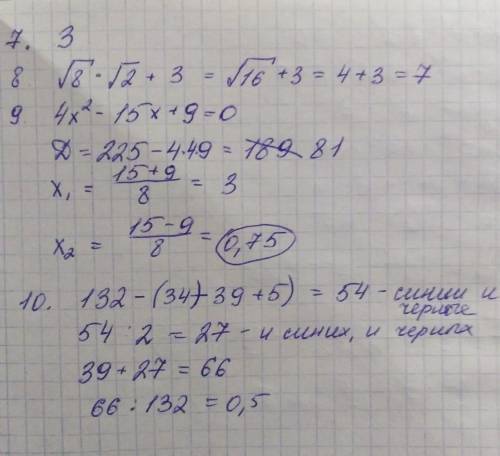 7. 3
8 √8 · √2 + 3 = √16 + 3 = 4 + 3 = 7
9 4x² - 15x + 9 = 0
D = 225 - 4·4·9 = 189 81
x₁ = (15 + 9)/8 = 3
x₂ = (15 - 9)/8 = 0,75
10. 132 - (34 - 39 + 5) = 54 - синии и черные
54 : 2 = 27 - и синих, и черных
39 + 27 = 66
66 : 132 = 0,5